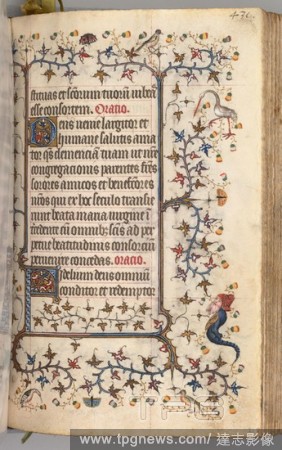 431
firmas et sctorum tuorum iubeas
esse consortem. Oratio.
Deus venie largitor et
humane salutis ama
tor qs clementiam tuam ut nre
congregacionis parentes frs
sorores amicos et benefcores
nros qui ex hoc seculo transie
runt beata maria virgine i
tcedente cu omnibz scis ad per
petue beatitudinis consorciu
pervenire concedas. oratio.
Fidelium deus omnium
conditor et redemptor
www.tpgnews.com/達志影像